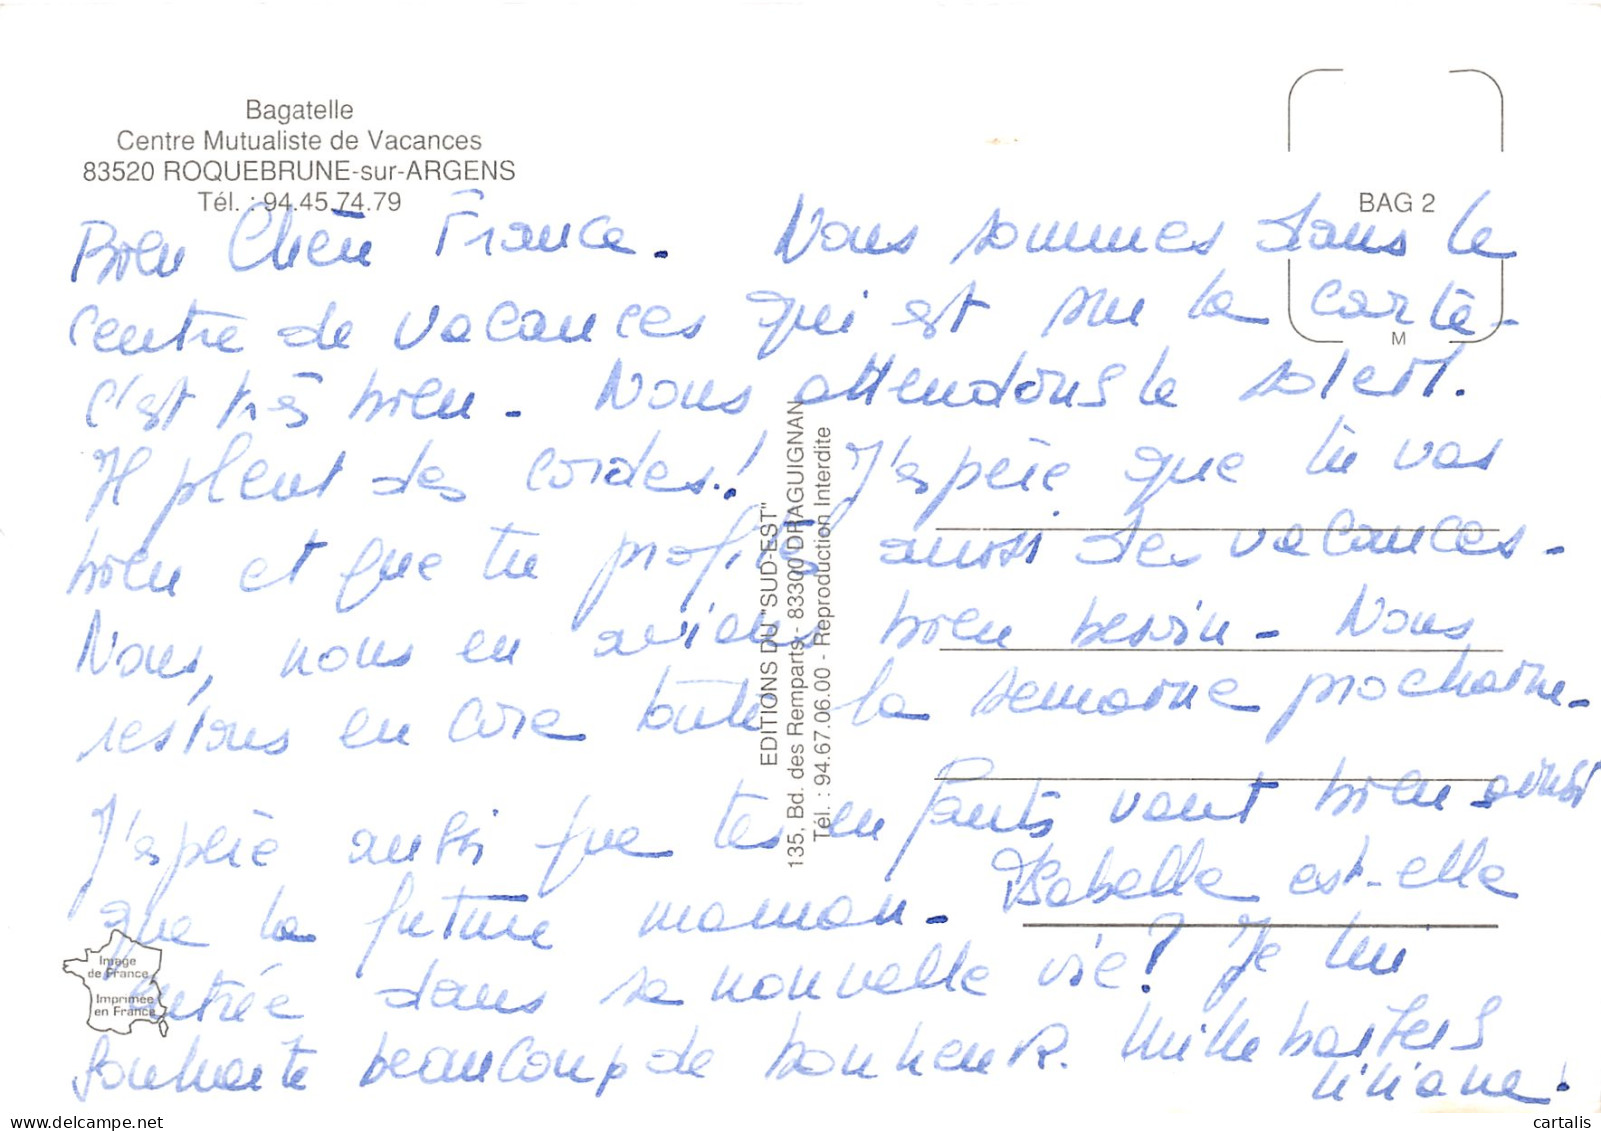 Bagatelle
Centre Mutualiste de Vacances
83520 ROQUEBRUNE-sur-ARGENS
Tél. : 94.45.74.79
BAG 2
M
Bien Chère France. Nous sommes dans le
centre de vacances qui est sur la carte -
c'est très bien - Nous attendons le soleil.
Il pleut des cordes! J'espère que tu vas
bien et que tu profites aussi des vacances -
Nous, nous en avions bien besoin - Nous
restons encore toute la semaine prochaine -
J'espère aussi que tes enfants vont bien ainsi
que la future maman - Isabelle est-elle
entrée dans sa nouvelle vie? Je lui
souhaite beaucoup de bonheur. Mille baisers
Liliane!
EDITIONS DU "SUD-EST"
135, Bd. des Remparts - 83300 DRAGUIGNAN
Tél. : 94.67.06.00 - Reproduction Interdite
Image
de France
Imprimée
en France
cartalis